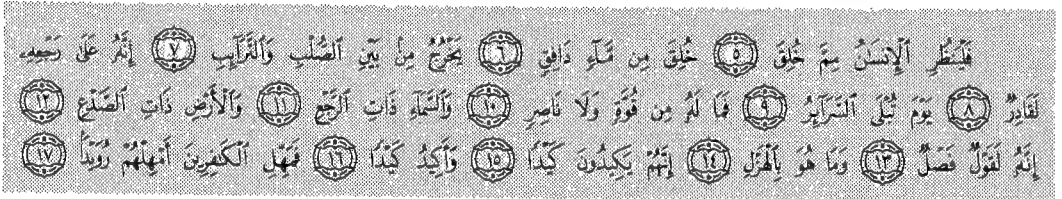 فَلْيَنظُرِ ٱلْإِنسَـٰنُ مِمَّ خُلِقَ ٥ خُلِقَ مِن مَّآءٍ دَافِقٍ ٦ يَخْرُجُ مِنۢ بَيْنِ ٱلصُّلْبِ وَٱلتَّرَآئِبِ ٧ إِنَّهُۥ عَلَىٰ رَجْعِهِۦ
لَقَادِرٌ ٨ يَوْمَ تُبْلَى ٱلسَّرَآئِرُ ٩ فَمَا لَهُۥ مِن قُوَّةٍ وَلَا نَاصِرٍ ١٠ وَٱلسَّمَآءِ ذَاتِ ٱلرَّجْعِ ١١ وَٱلْأَرْضِ ذَاتِ ٱلصَّدْعِ ١٢
إِنَّهُۥ لَقَوْلٌ فَصْلٌ ١٣ وَمَا هُوَ بِٱلْهَزْلِ ١٤ إِنَّهُمْ يَكِيدُونَ كَيْدًا ١٥ وَأَكِيدُ كَيْدًا ١٦ فَمَهِّلِ ٱلْكَـٰفِرِينَ أَمْهِلْهُمْ رُوَيْدًۢا ١٧